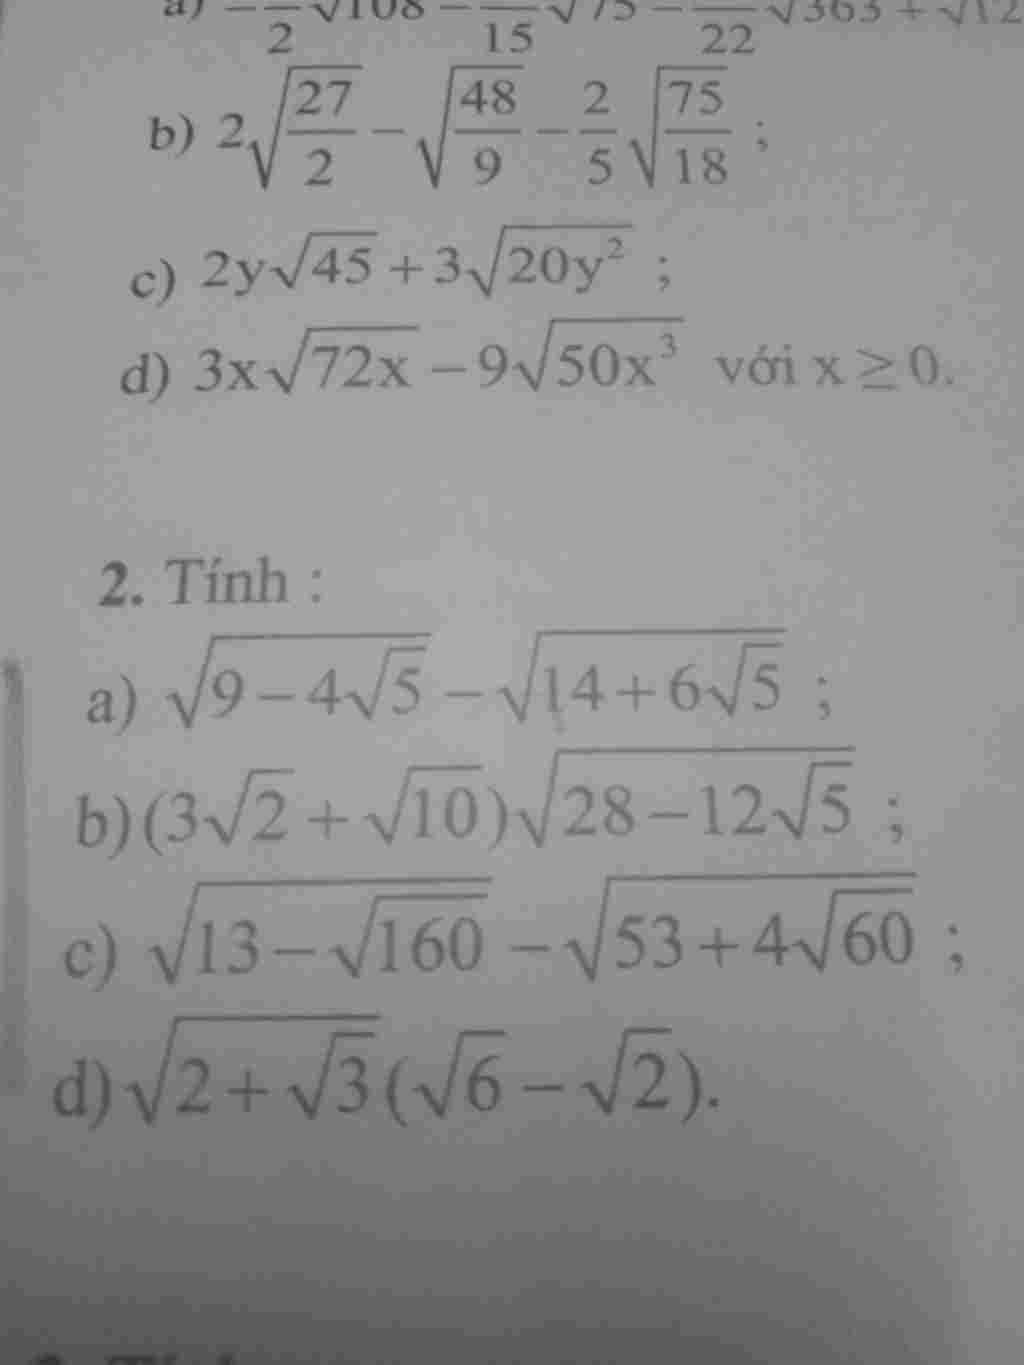 a) √108 − /15 √75 − /22 √363 + √12
b) 2√(27/2) − √(48/9) − 2/5 √(75/18) ;
c) 2y√45 + 3√(20y²) ;
d) 3x√(72x) − 9√(50x³) với x ≥ 0.
2. Tính :
a) √(9 − 4√5) − √(14 + 6√5) ;
b) (3√2 + √10)√(28 − 12√5) ;
c) √(13 − √160) − √(53 + 4√60) ;
d) √(2 + √3)(√6 − √2).